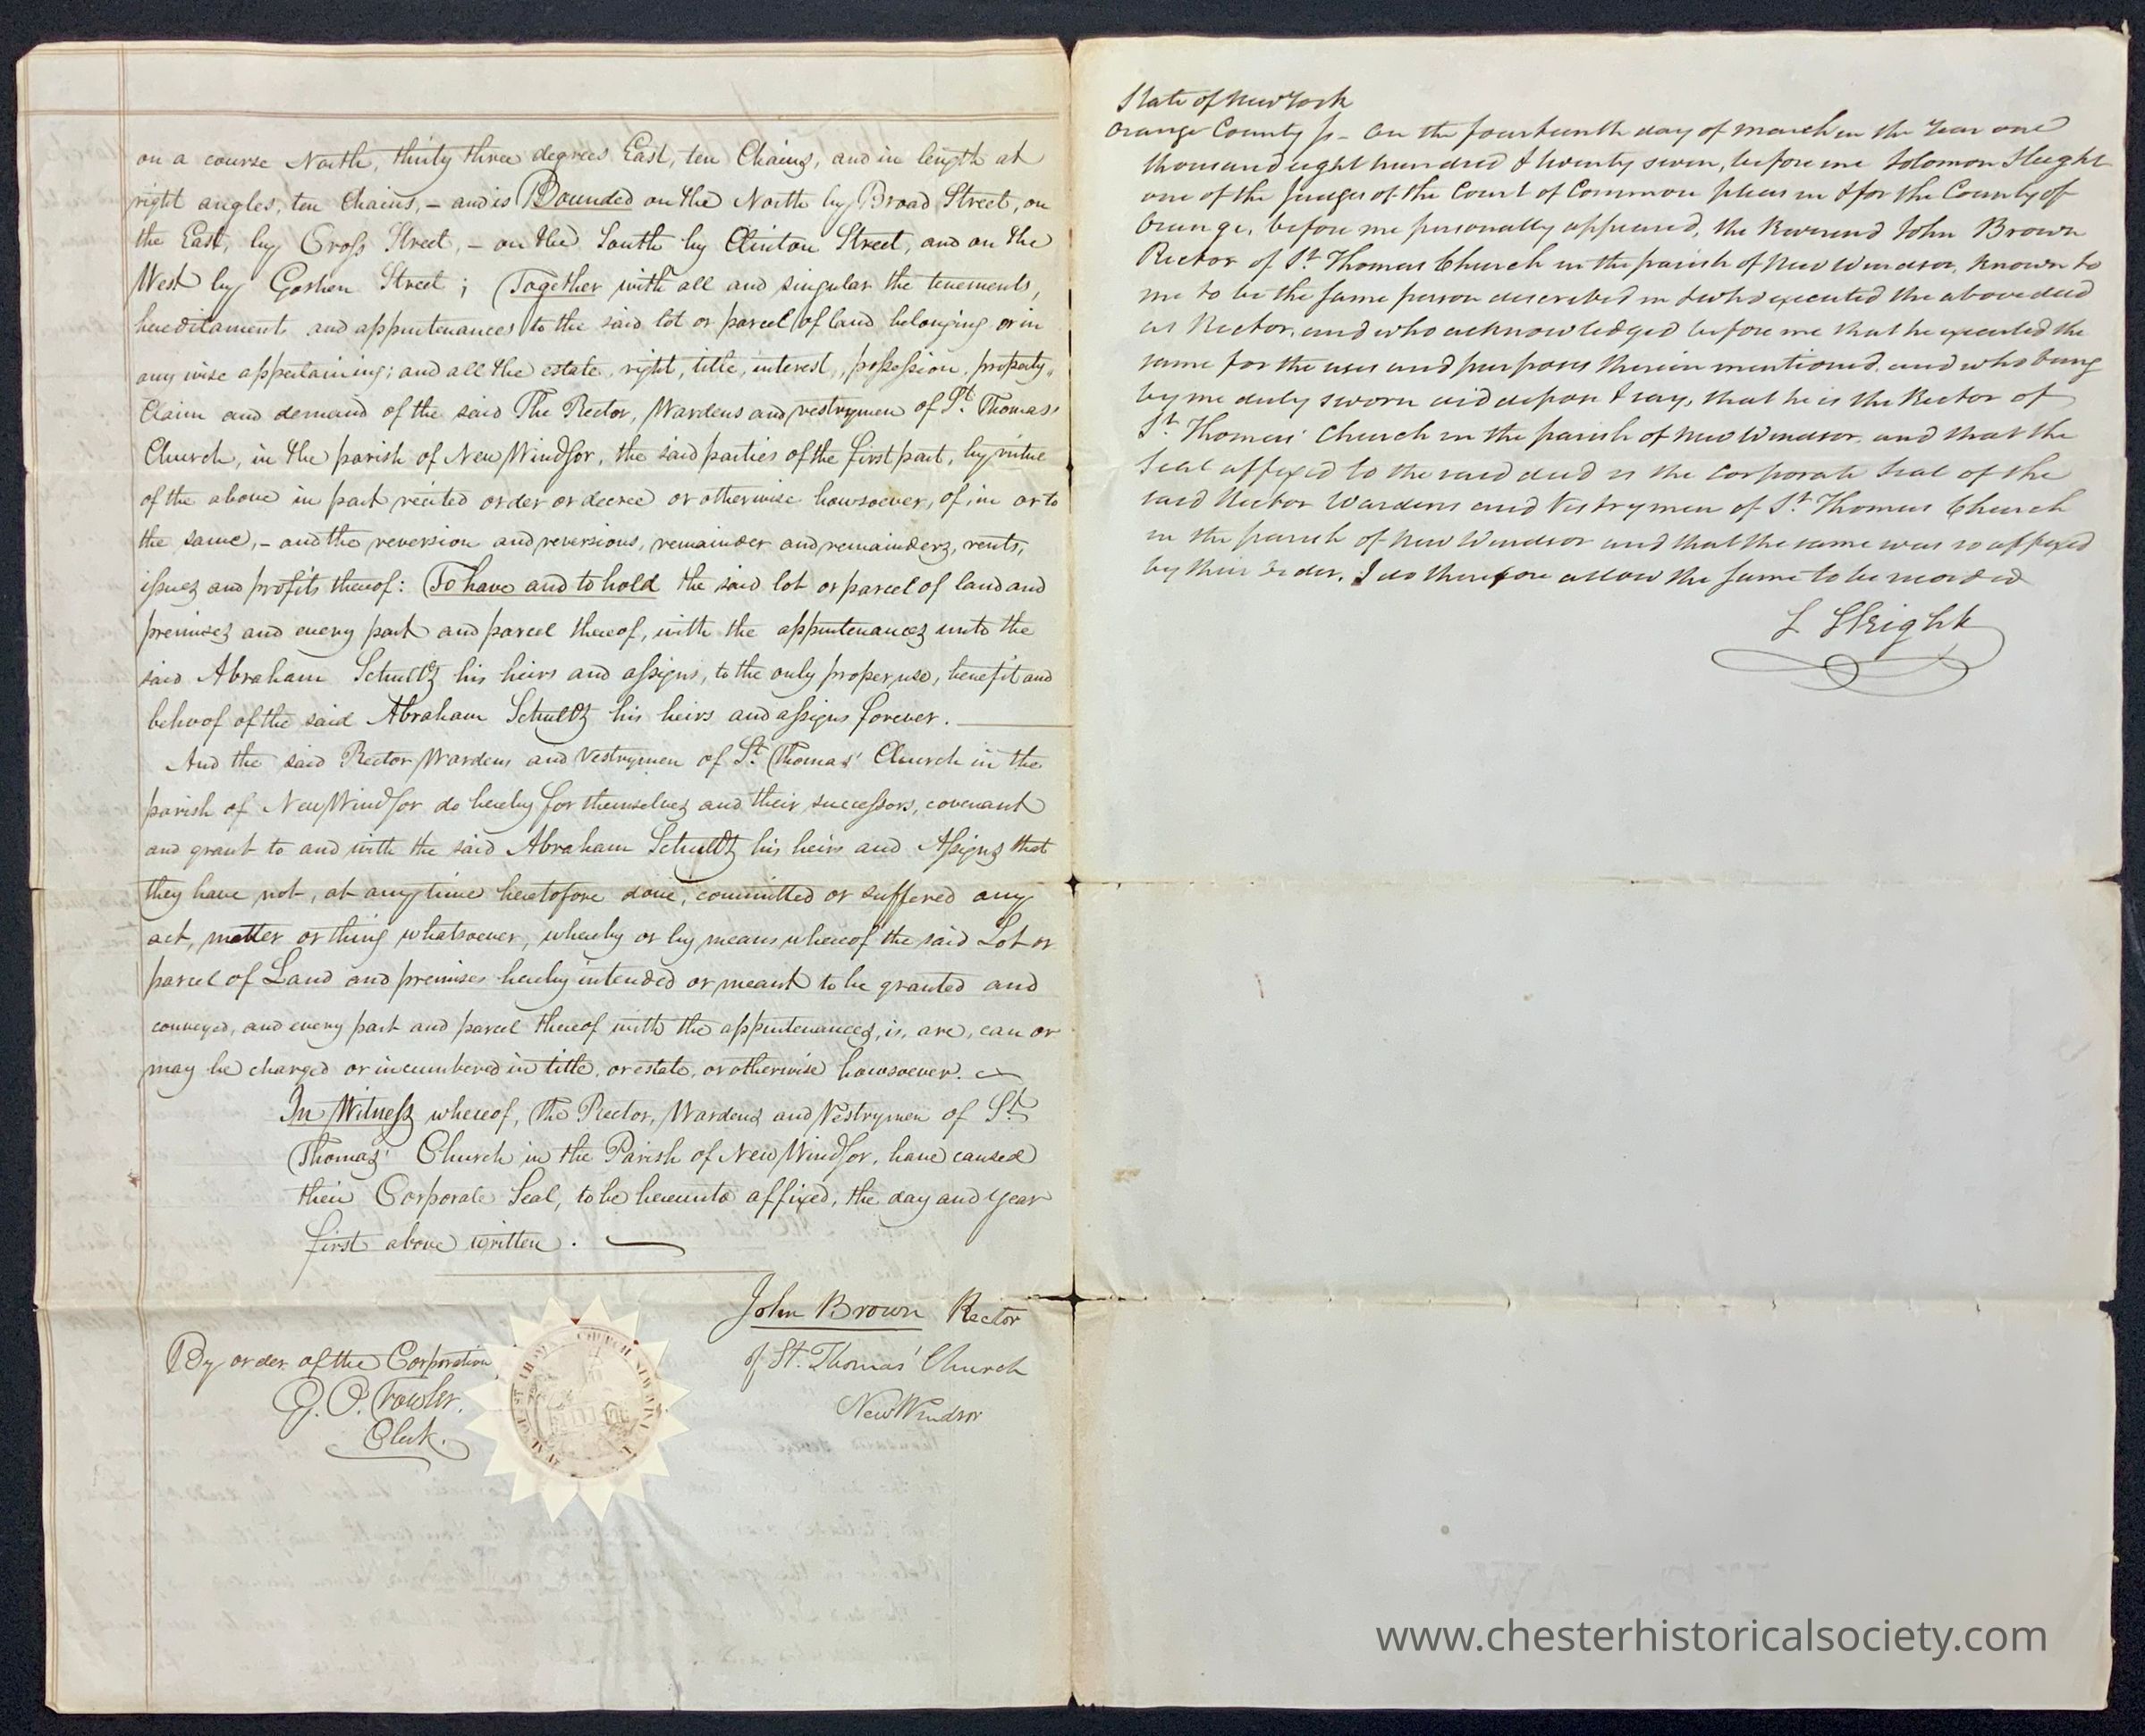 on a course North, thirty three degrees East, ten Chains, and in length at
right angles, ten Chains, – and is Bounded on the North by Broad Street, on
the East, by Cross Street, – on the South by Clinton Street, and on the
West by Goshen Street; Together with all and singular the tenements,
hereditament and appurtenances to the said lot or parcel of land belonging or in
any wise appertaining; and all the estate, right, title, interest, possession, property,
Claim and demand of the said The Rector, Wardens and vestrymen of St. Thomas'
Church, in the parish of New Windsor, the said parties of the first part, by virtue
of the above in part recited order or decree or otherwise howsoever, of, in or to
the same, – and the reversion and reversions, remainder and remainders, rents,
issues and profits thereof: To have and to hold the said lot or parcel of land and
premises and every part and parcel thereof, with the appurtenances unto the
said Abraham Schultz his heirs and assigns, to the only proper use, benefit and
behoof of the said Abraham Schultz his heirs and assigns forever.
And the said Rector Wardens and Vestrymen of St. Thomas' Church in the
parish of New Windsor do hereby for themselves and their successors, covenant
and grant to and with the said Abraham Schultz his heirs and Assigns that
they have not, at any time heretofore done, committed or suffered any
act, matter or thing whatsoever, whereby or by means whereof the said Lot or
parcel of Land and premises hereby intended or meant to be granted and
conveyed, and every part and parcel thereof with the appurtenances, is, are, can or
may be charged or incumbered in title, or estate, or otherwise howsoever.
In Witness whereof, the Rector, Wardens and Vestrymen of St.
Thomas' Church in the Parish of New Windsor, have caused
their Corporate Seal, to be hereunto affixed, the day and year
first above written.
John Brown Rector
of St. Thomas' Church
New Windsor
By order of the Corporation
G. O. Fowler.
Clerk.
State of New York
Orange County ss – On the fourteenth day of march in the Year one
thousand eight hundred & twenty seven, before me Solomon Sleight
one of the Judges of the Court of Common pleas in & for the County of
Orange, before me personally appeared, the Reverend John Brown
Rector of St. Thomas Church in the parish of New Windsor, known to
me to be the same person described in & who executed the above deed
as Rector, and who acknowledged before me that he executed the
same for the uses and purposes therein mentioned, and who being
by me duly sworn did depose & say, that he is the Rector of
St. Thomas' Church in the parish of New Windsor, and that the
Seal affixed to the said deed is the Corporate Seal of the
said Rector Wardens and Vestrymen of St. Thomas Church
in the parish of New Windsor and that the same was so affixed
by their order. I do therefore allow the same to be recorded
S Sleight
www.chesterhistoricalsociety.com